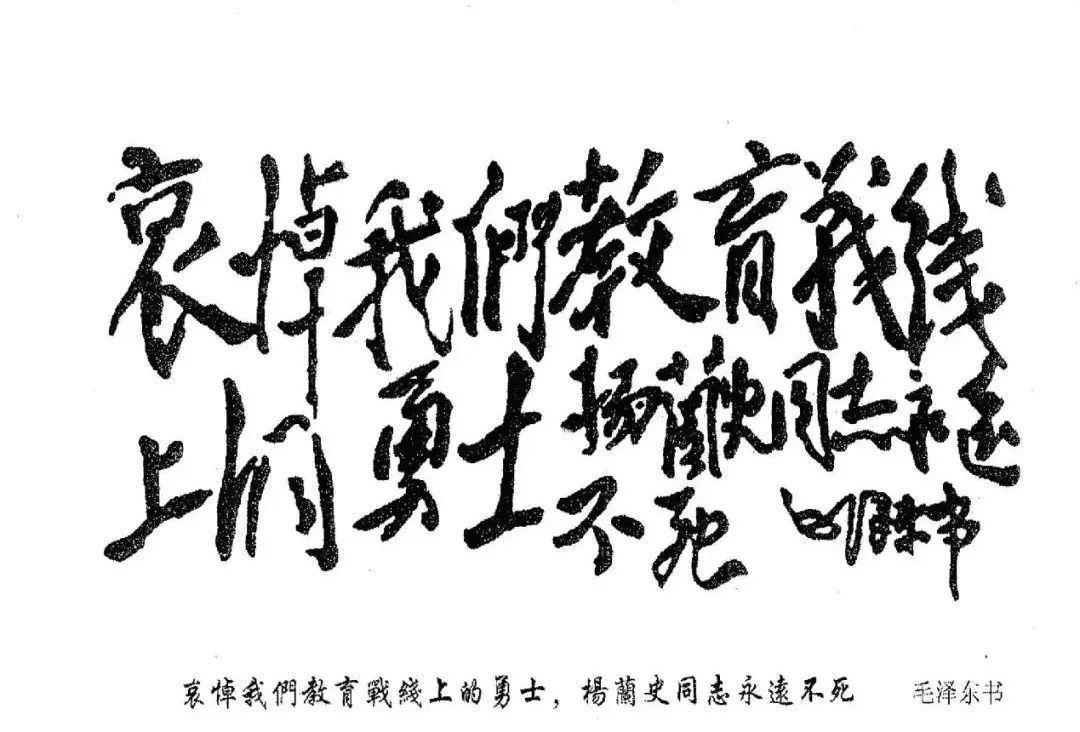 哀悼我們教育戰綫
上的勇士楊蘭史同志永遠
不死
哀悼我們教育戰綫上的勇士，楊蘭史同志永遠不死 毛泽东书